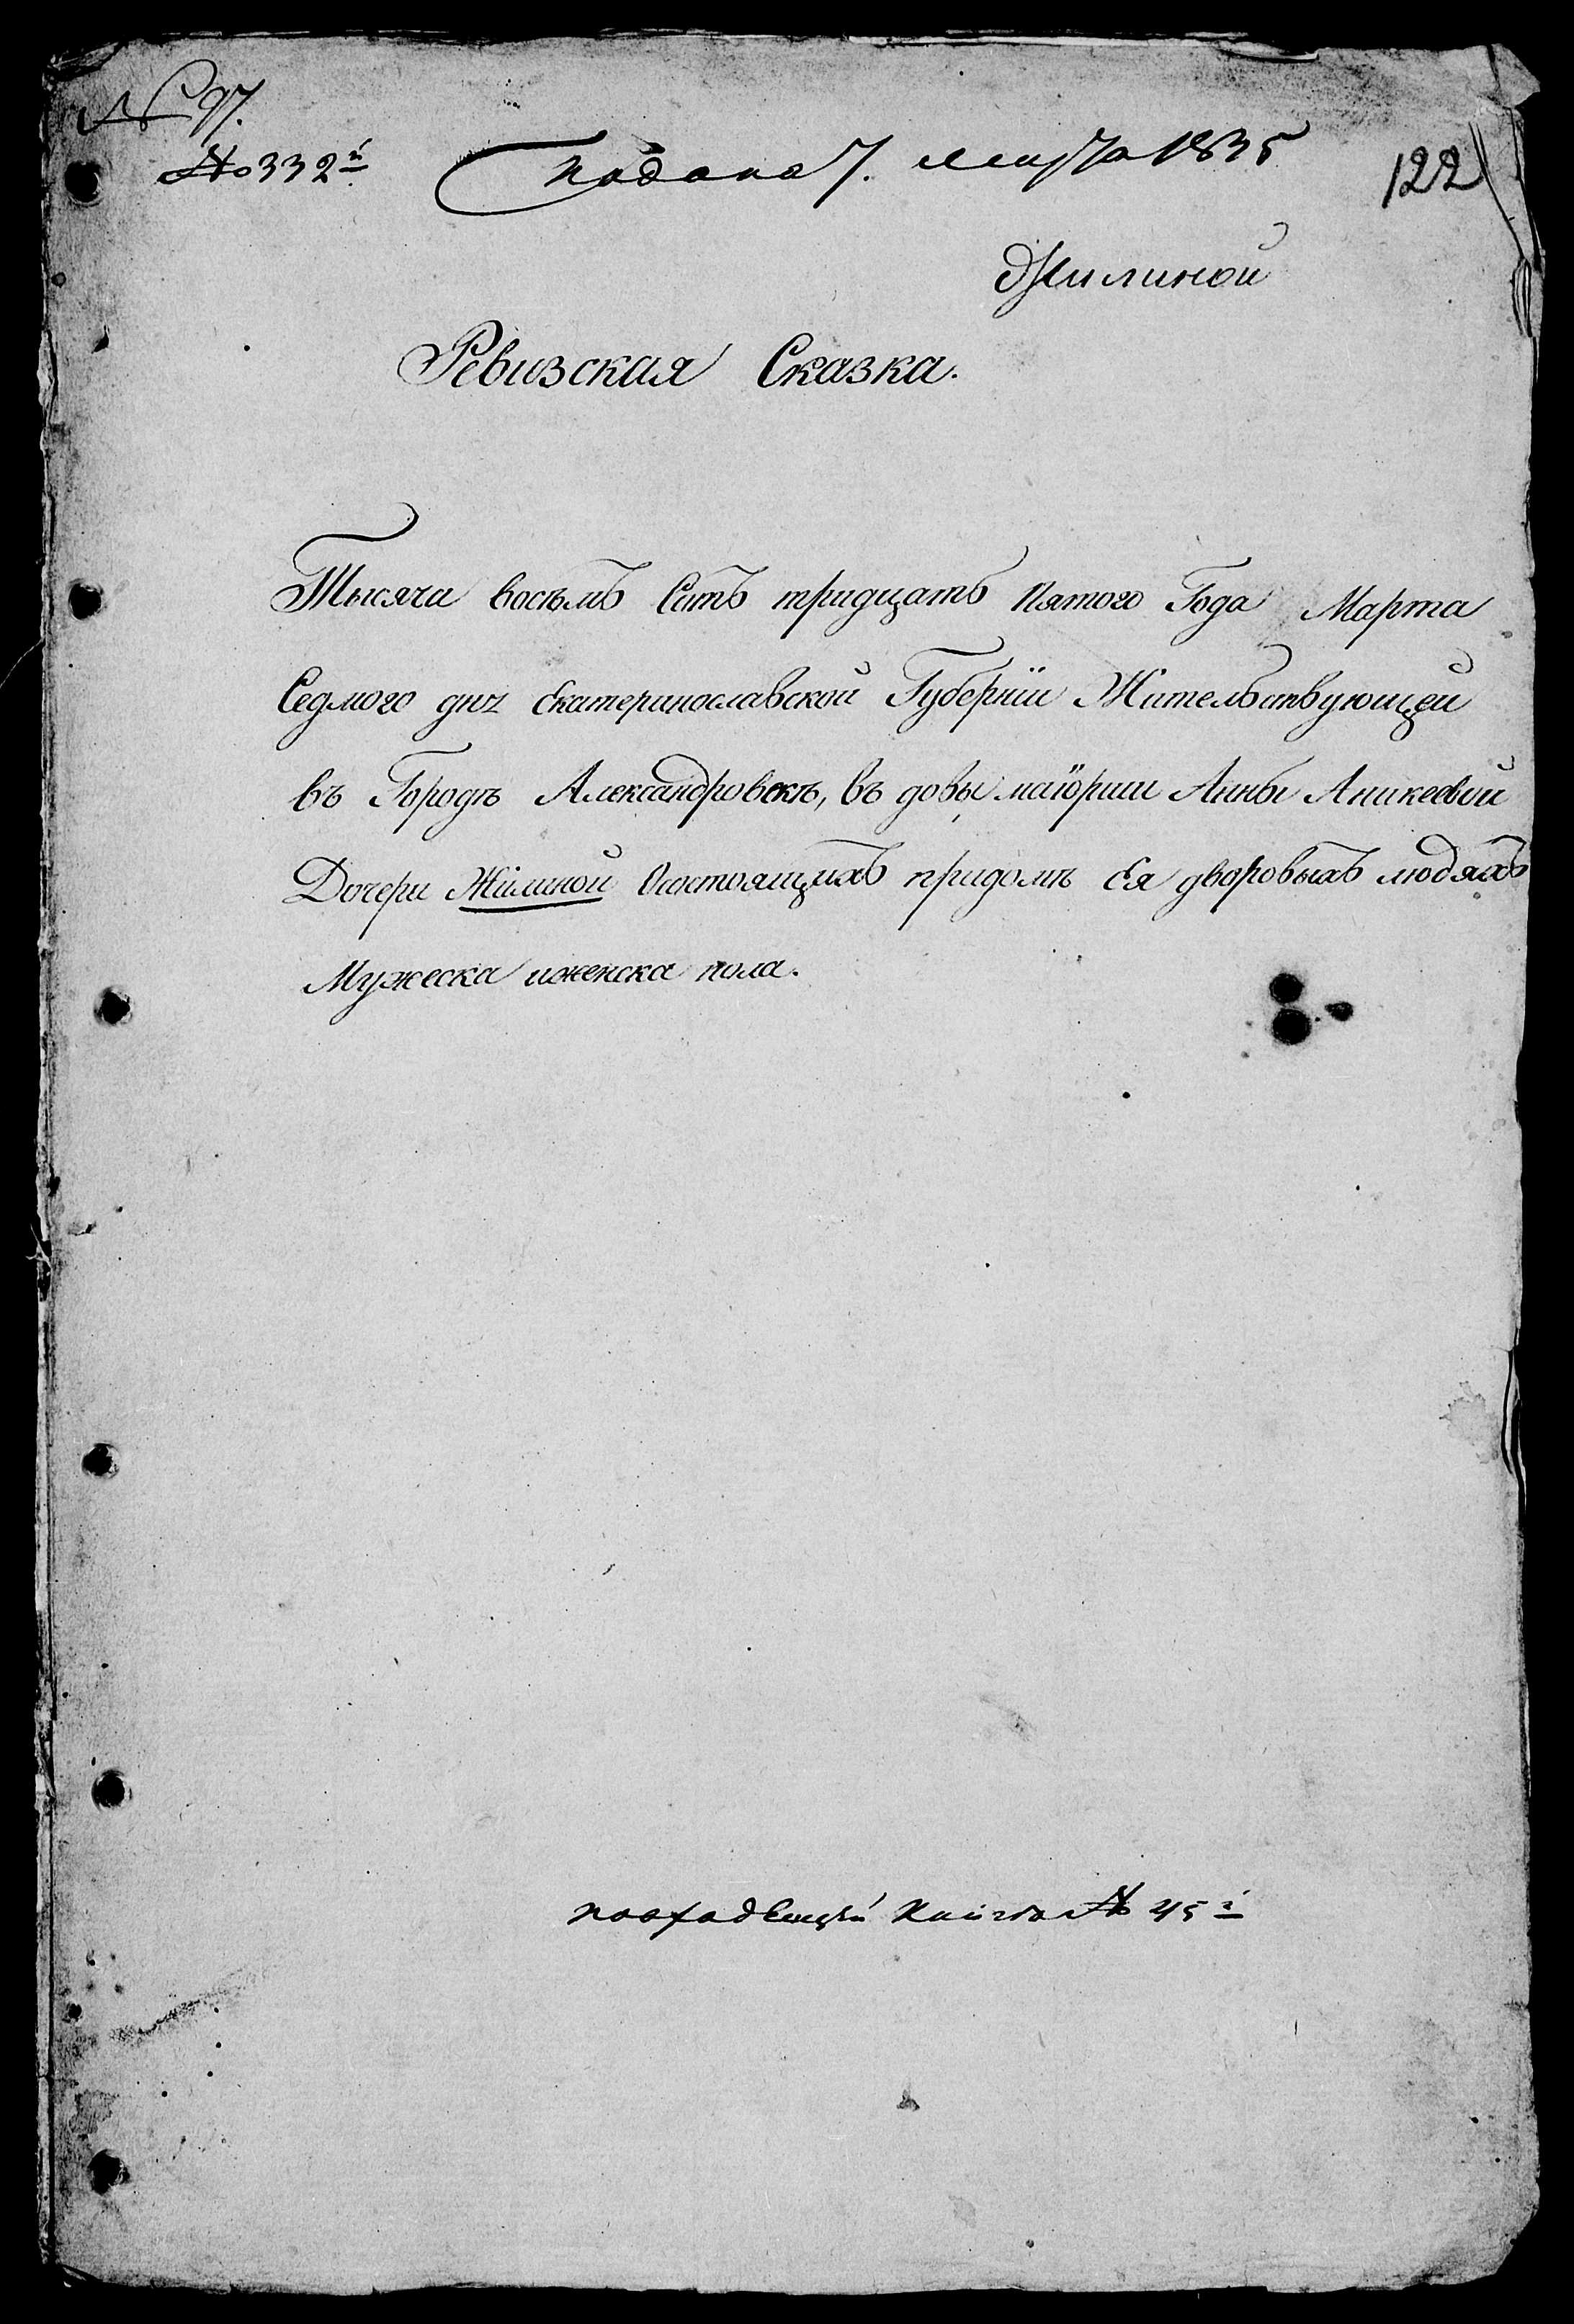 № 97.
№ 332й
Подана 7. марта 1835
122
Жилиной
Ревизская Сказка.
Тысяча восемъ Сотъ тридцать пятого Года Марта
Седмого дня Екатеринославской Губерніи Жительствующей
въ Городѣ Александровскѣ, въ довы маіорши Анны Аникеевой
Дочери Жилиной Осостоящихъ придомѣ Ея дворовыхъ людяхъ
Мужеска иженска пола.
повходящей книги № 45й